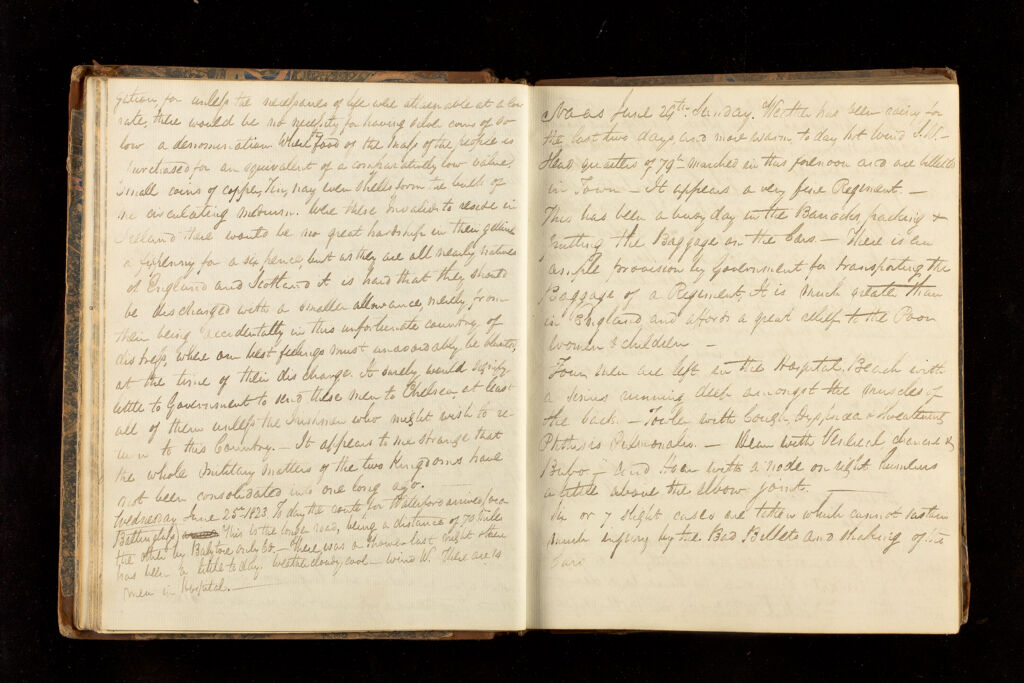 gation, for unless the necessaries of life were attainable at a low
rate, there would be no necessity for having such coins of so
low a denomination. When food of the Mass of the people is
purchased for an equivalent of a comparatively low value,
Small coins of copper, Tin, nay even Shells form the bulk of
the circulating medium. Were these Invalids to reside in
Ireland there would be no great hardship in their getting
a fivepenny for a six pence, but as they are all nearly natives
of England and Scotland it is hard that they should
be discharged with a smaller allowance, merely from
their being accidentally in this unfortunate country, of
distress, where our best feelings must unavoidably be blunted,
at the time of their discharge. It surely would signify
little to Government to send these men to Chelsea, at least
all of them unless the Irishmen who might wish to re-
turn to this Country. - It appears to me strange that
the whole Military matters of the two Kingdoms have
not been consolidated into one long ago. -
Wednesday June 25th 1823. To day the route for Waterford arrived
Ballinglass, This is the longe road, being a distance of 70 miles
the other by only 60. - There was a shower last night there
has been a little to day. Weather cloudy, cool - wind W. There are 13
men in Hospital. -
Naas June 29th Sunday. Weather has been airy for
the last two days, and more warm to day but wind S.W. -
Head quarters of 79th marched in this forenoon and are billetted
in Town - It appears a very fine Regiment. -
This has been a busy day in the Barracks, packing &
putting the Baggage on the Cars. - There is an
ample provision by Government for transporting the
Baggage of a Regiment, It is much greater than
in England and affords a great relief to the Poor
Women & children -
Four men are left in the Hospital. Beach with
a sinus running deep amongst the muscles of
the back. - Fowler with Cough, Dyspnoea & Sweatings
Phthisis Pulmonalis. - with Venereal chancre &
Bubo - and with a node on right humerus
a little above the elbow joint.
Six or 7 slight cases are taken which cannot sustain
much injury by the Bad Billets and shaking of the
Cars